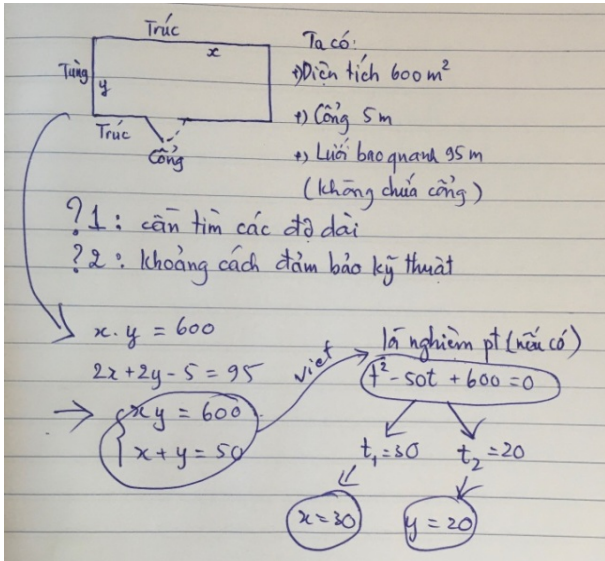 Trúc
x
Tùng
y
Trúc
Cổng
Ta có:
+) Diện tích 600 m²
+) Cổng 5 m
+) Lưới bao quanh 95 m
(không chứa cổng)
?1: cần tìm các độ dài
?2: khoảng cách đảm bảo kỹ thuật
x.y = 600
2x+2y-5 = 95
→ { xy = 600
x+y = 50
viet
là nghiệm pt (nếu có)
t² - 50t + 600 = 0
t₁ = 30 t₂ = 20
x = 30 y = 20